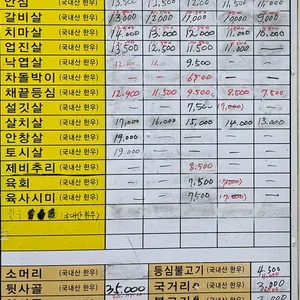 안심 (국내산 한우) 13,500 12,500 11,500 11,000
갈비살 (국내산 한우) 13,000 12,000 11,000 10,000 9,000
치마살 (국내산 한우) 14,000 13,000 12,000 11,000 10,000
업진살 (국내산 한우) 13,500 12,500 11,500 11,000 —
낙엽살 (국내산 한우) 9,500 — —
차돌박이 (국내산 한우) — — 6500 — —
채끝등심 (국내산 한우) 12,900 11,500 9,500 8,500 7,500
설깃살 (국내산 한우) — — 7,500 (7,000) —
살치살 (국내산 한우) 17,000 16,000 15,000 14,000 13,000
안창살 (국내산 한우) 19,000 — — — —
토시살 (국내산 한우) 19,000 — — — —
제비추리 (국내산 한우) — — 8,500 — —
육회 (국내산 한우) — — 7,500 (7,000) —
육사시미 (국내산 한우) — — 7,500 (7,000) —
(국내산 한우)
소머리 (국내산 한우) 등심불고기 (국내산 한우) 4,500
뒷사골 (국내산 한우) 35,000 국거리 (국내산 한우) 3,000